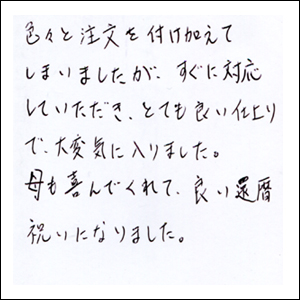 色々と注文を付け加えて
しまいましたが、すぐに対応
していただき、とても良い仕上り
で、大変気に入りました。
母も喜んでくれて、良い還暦
祝いになりました。